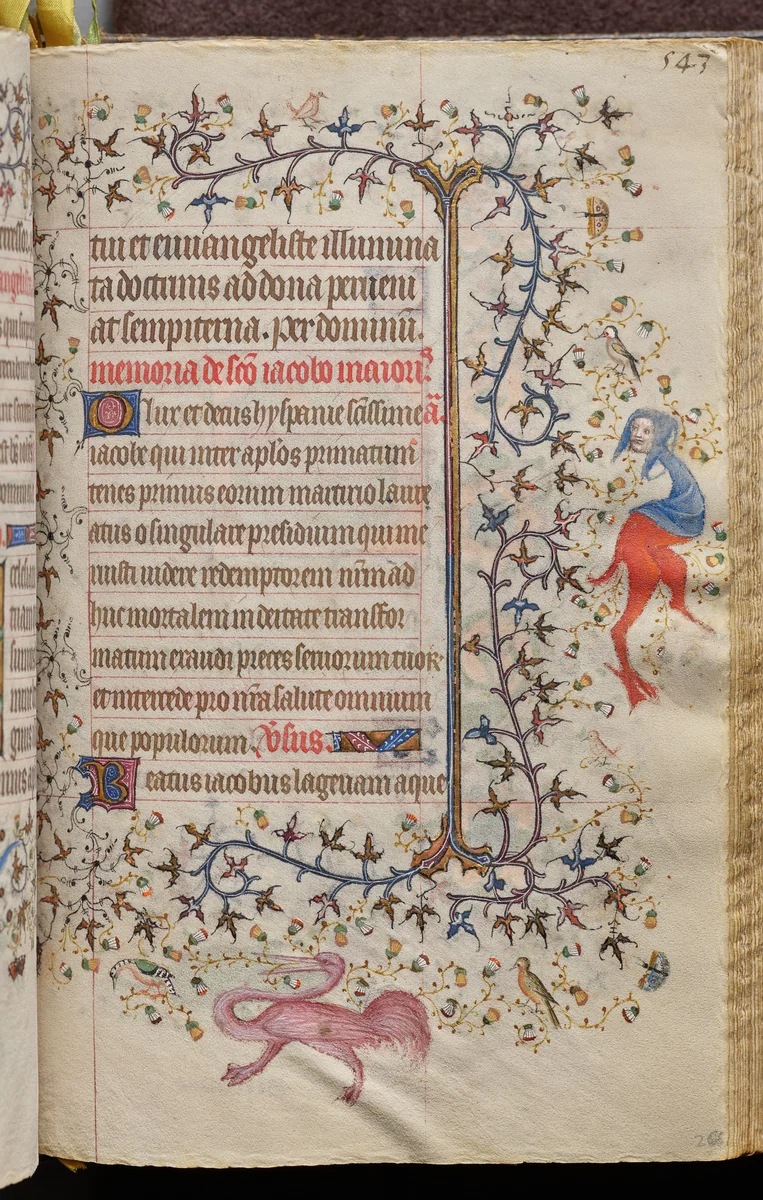 543
tui et euuangeliste illumina
ta doctrinis ad dona perueni
at sempiterna. per dominū.
memoria de scō iacobo maiori
O lux et decus hyspanie sc̄issime a.
iacobe qui inter apl'os primatum
tenes primus eorum martirio laure
atus o singulare presidium qui me
ruisti uidere redemptorem nr̄m ad
huc mortalem in deitate transfor
matum exaudi preces seruorum tuoꝝ
et intercede pro nr̄a salute omnium
que populorum. V̄sus.
Beatus iacobus lagenam aque